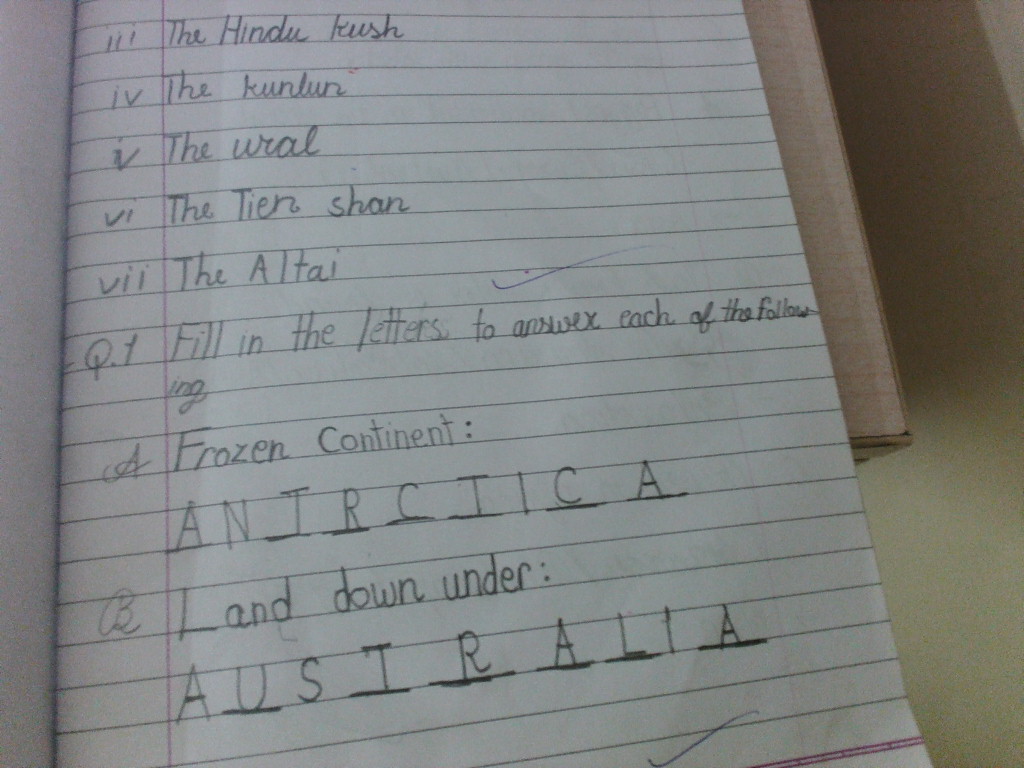 iii The Hindu kush
iv The kunlun
v The ural
vi The Tien shan
vii The Altai
Q.1 Fill in the letters to answer each of the follow
ing
A Frozen Continent:
ANTRCTICA
B Land down under:
AUSTRALIA